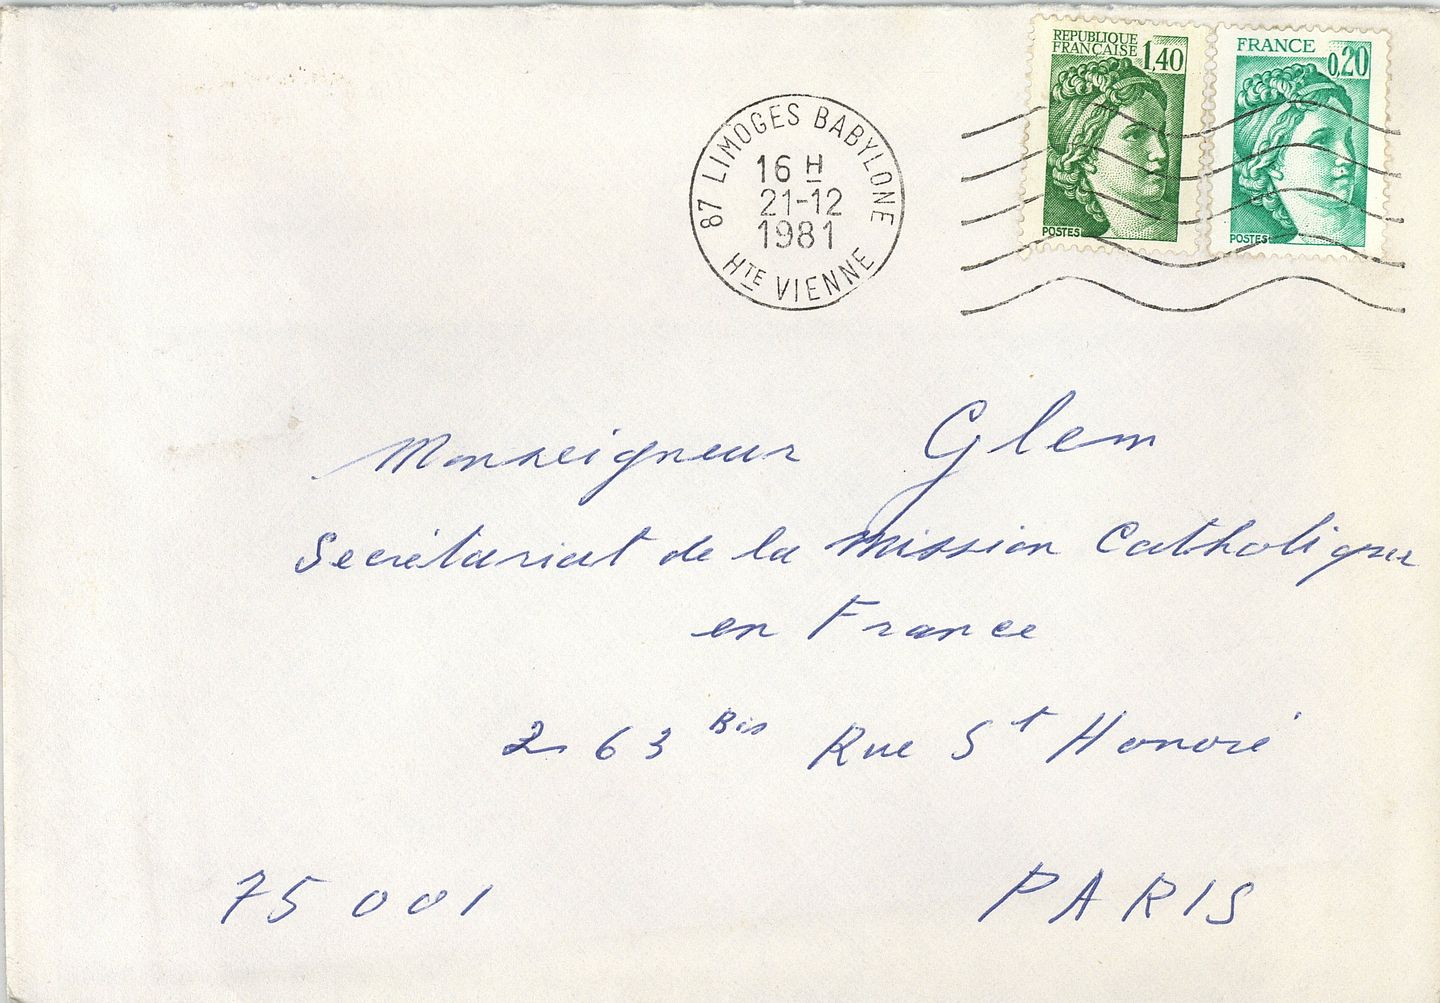 REPUBLIQUE
FRANÇAISE 1,40
POSTES
FRANCE
0,20
POSTES
87 LIMOGES BABYLONE
16 H
21-12
1981
HTE VIENNE
Monseigneur Glem
Secrétariat de la Mission Catholique
en France
263 Bis Rue St Honoré
75 001 PARIS